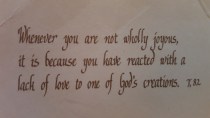 Whenever you are not wholly joyous,
it is because you have reacted with a
lack of love to one of God's creations. T.82